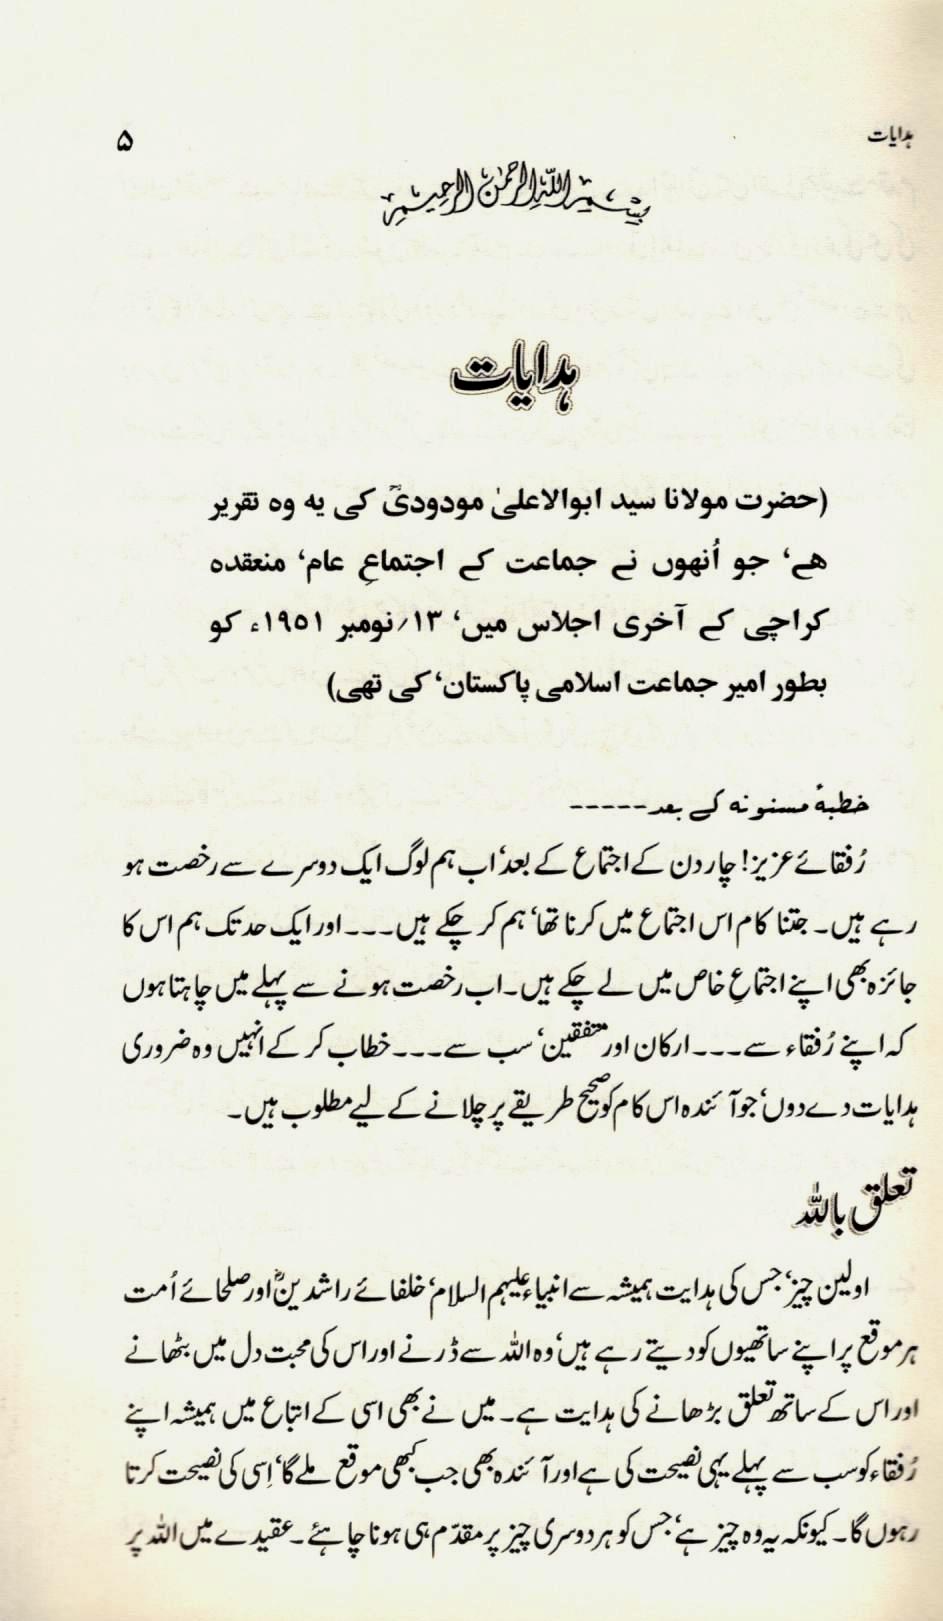 ہدایات ۵
بسم اللہ الرحمن الرحیم
ہدایات
(حضرت مولانا سید ابوالاعلیٰ مودودیؒ کی یہ وہ تقریر
ھے‘ جو اُنھوں نے جماعت کے اجتماعِ عام‘ منعقدہ
کراچی کے آخری اجلاس میں‘ ۱۳؍نومبر ۱۹۵۱ء کو
بطور امیر جماعت اسلامی پاکستان‘ کی تھی)
خطبۂ مسنونہ کے بعد-----
رُفقائے عزیز! چار دن کے اجتماع کے بعد‘ اب ہم لوگ ایک دوسرے سے رخصت ہو
رہے ہیں۔ جتنا کام اس اجتماع میں کرنا تھا‘ ہم کر چکے ہیں۔۔۔ اور ایک حد تک ہم اس کا
جائزہ بھی اپنے اجتماعِ خاص میں لے چکے ہیں۔ اب رخصت ہونے سے پہلے میں چاہتا ہوں
کہ اپنے رُفقاء سے۔۔۔ ارکان اور متفقین‘ سب سے۔۔۔ خطاب کر کے انہیں وہ ضروری
ہدایات دے دوں‘ جو آئندہ اس کام کو صحیح طریقے پر چلانے کے لیے مطلوب ہیں۔
تعلق باللہ
اولین چیز‘ جس کی ہدایت ہمیشہ سے انبیاء علیہم السلام‘ خلفائے راشدینؓ اور صلحائے اُمت
ہر موقع پر اپنے ساتھیوں کو دیتے رہے ہیں‘ وہ اللہ سے ڈرنے اور اس کی محبت دل میں بٹھانے
اور اس کے ساتھ تعلق بڑھانے کی ہدایت ہے۔ میں نے بھی اسی کے اتباع میں ہمیشہ اپنے
رُفقاء کو سب سے پہلے یہی نصیحت کی ہے اور آئندہ بھی جب کبھی موقع ملے گا‘ اِسی کی نصیحت کرتا
رہوں گا۔ کیونکہ یہ وہ چیز ہے‘ جس کو ہر دوسری چیز پر مقدّم ہی ہونا چاہئے۔ عقیدے میں اللہ پر